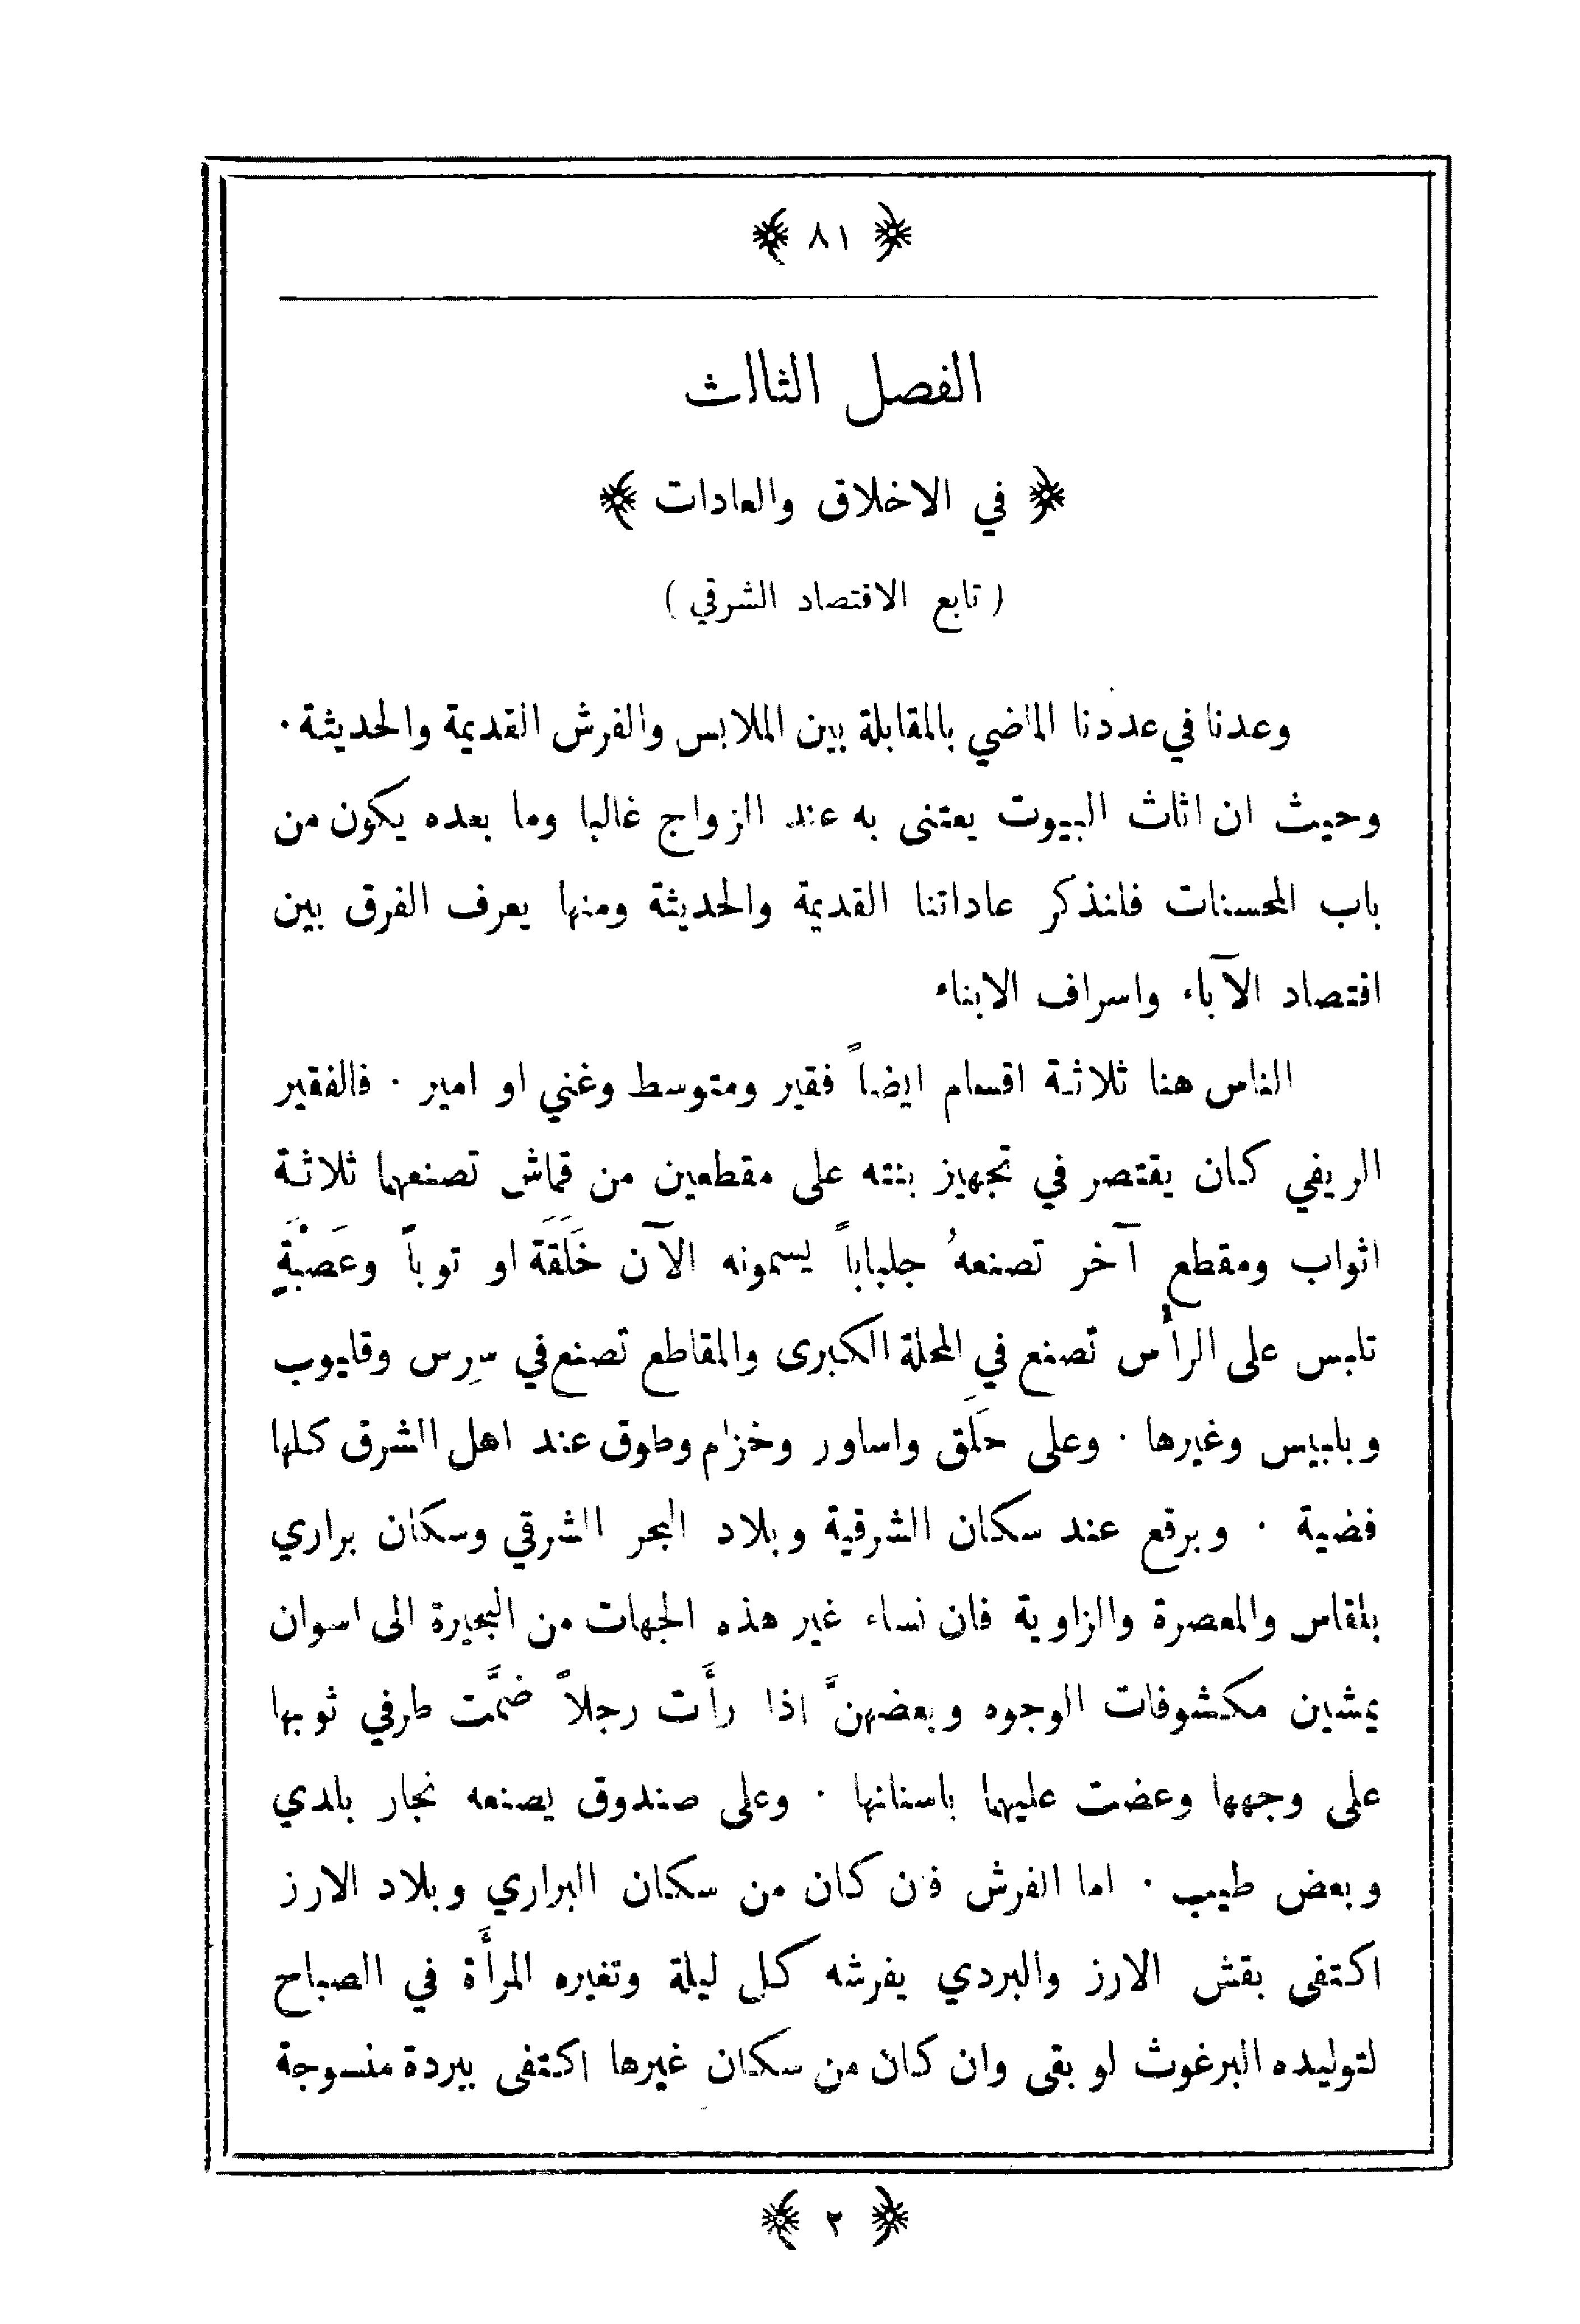 ﴿ ٨١ ﴾
الفصل الثالث
﴿ في الاخلاق والعادات ﴾
( تابع الاقتصاد الشرقي )
وعدنا في عددنا الماضي بالمقابلة بين الملابس والفرش القديمة والحديثة ٠
وحيث ان اثاث البيوت يعتنى به عند الزواج غالبا وما بعده يكون من
باب المحسنات فلنذكر عاداتنا القديمة والحديثة ومنها يعرف الفرق بين
اقتصاد الآباء واسراف الابناء
الناس هنا ثلاثة اقسام ايضاً فقير ومتوسط وغني او امير ٠ فالفقير
الريفي كان يقتصر في تجهيز بنته على مقطعين من قماش تصنعهما ثلاثة
اثواب ومقطع آخر تصنعهُ جلباباً يسمونه الآن خَلَقَة او توباً وعَصْبَةٍ
تلبس على الرأس تصنع في المحلة الكبرى والمقاطع تصنع في سِرس وقليوب
وبلبيس وغيرها ٠ وعلى حَلَق واساور وخزام وطوق عند اهل الشرق كلها
فضية ٠ وبرقع عند سكان الشرقية وبلاد البحر الشرقي وسكان براري
بلقاس والمعصرة والزاوية فان نساء غير هذه الجهات من البحيرة الى اسوان
يمشين مكشوفات الوجوه وبعضهنَّ اذا رأَت رجلاً ضمَّت طرفي ثوبها
على وجهها وعضت عليهما باسنانها ٠ وعلى صندوق يصنعه نجار بلدي
وبعض طيب ٠ اما الفرش فان كان من سكان البراري وبلاد الارز
اكتفى بقش الارز والبردي يفرشه كل ليلة وتغيره المرأَة في الصباح
لتوليده البرغوث لو بقى وان كان من سكان غيرها اكتفى ببردة منسوجة
﴿ ٢ ﴾